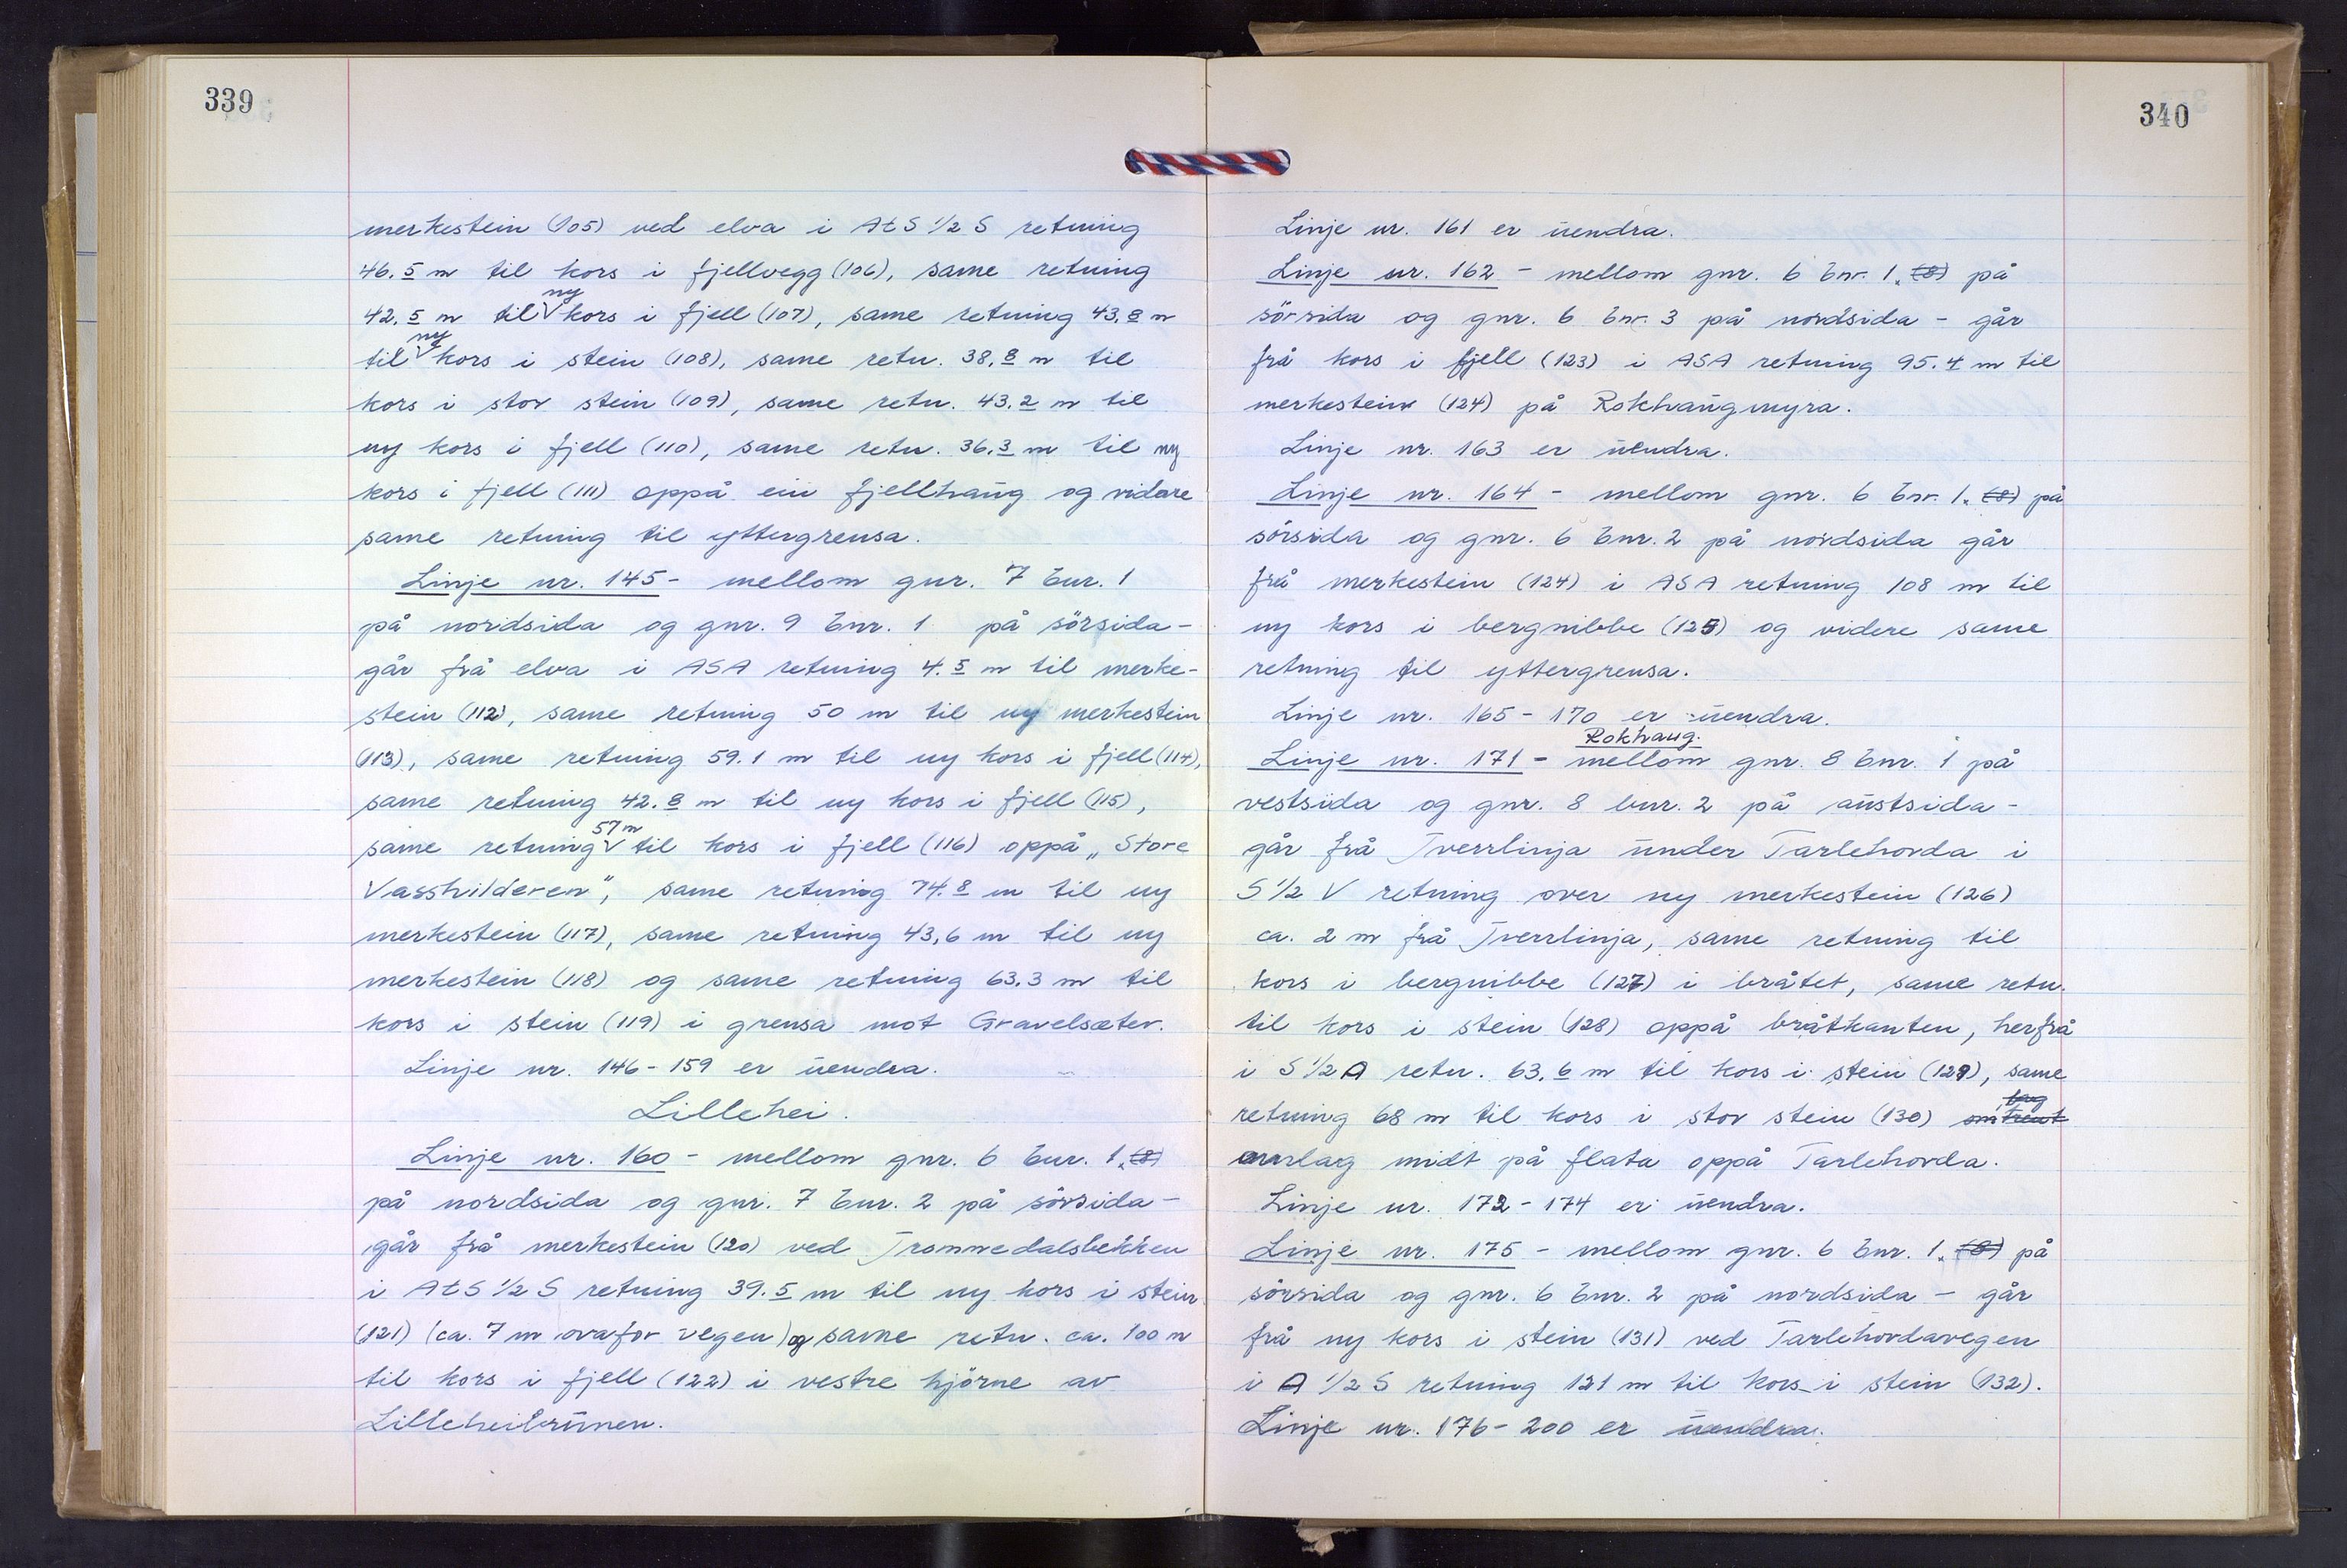 339
merkestein (105) ved elva i AtS 1/2 S retning
46.5 m til kors i fjellvegg (106), same retning
42.5 m til ny kors i fjell (107), same retning 43.8 m
til ny kors i stein (108), same retn. 38.8 m til
kors i stor stein (109), same retn. 43.2 m til
ny kors i fjell (110), same retn. 36.3 m til ny
kors i fjell (111) oppå ein fjellhaug og vidare
same retning til yttergrensa.
Linje nr. 145 - mellom gnr. 7 bnr. 1
på nordsida og gnr. 9 bnr. 1 på sörsida -
går frå elva i ASA retning 4.5 m til merke-
stein (112), same retning 50 m til ny merkestein
(113), same retning 59.1 m til ny kors i fjell (114),
same retning 42.8 m til ny kors i fjell (115),
same retning 57 m til kors i fjell (116) oppå „Store
Vasshilderen", same retning 74.8 m til ny
merkestein (117), same retning 43,6 m til ny
merkestein (118) og same retning 63.3 m til
kors i stein (119) i grensa mot Gravelsæter.
Linje nr. 146 - 159 er uendra.
Lillehei.
Linje nr. 160 - mellom gnr. 6 bnr. 1. (8)
på nordsida og gnr. 7 bnr. 2 på sörsida -
går frå merkestein (120) ved Trommedalsbekken
i AtS 1/2 S retning 39.5 m til ny kors i stein
(121) (ca. 7 m ovafor vegen) og same retn. ca. 100 m
til kors i fjell (122) i vestre hjörne av
Lilleheibrunen.
340
Linje nr. 161 er uendra.
Linje nr. 162 - mellom gnr. 6 bnr. 1. (8) på
sörsida og gnr. 6 bnr. 3 på nordsida - går
frå kors i fjell (123) i ASA retning 95.4 m til
merkestein (124) på Rokhaugmyra.
Linje nr. 163 er uendra.
Linje nr. 164 - mellom gnr. 6 bnr. 1. (8) på
sörsida og gnr. 6 bnr. 2 på nordsida går
frå merkestein (124) i ASA retning 108 m til
ny kors i bergnibbe (125) og videre same
retning til yttergrensa.
Linje nr. 165 - 170 er uendra.
Rokhaug.
Linje nr. 171 - mellom gnr. 8 bnr. 1 på
vestsida og gnr. 8 bnr. 2 på austsida -
går frå Tverrlinja under Tarlehovda i
S 1/2 V retning over ny merkestein (126)
ca. 2 m frå Tverrlinja, same retning til
kors i bergnibbe (127) i bråtet, same retn.
til kors i stein (128) oppå bråtkanten, herfrå
i S 1/2 A retn. 63.6 m til kors i stein (129), same
retning 68 m til kors i stor stein (130) omtrent
omlag midt på flata oppå Tarlehovda.
Linje nr. 172 - 174 er uendra.
Linje nr. 175 - mellom gnr. 6 bnr. 1. (8) på
sörsida og gnr. 6 bnr. 2 på nordsida - går
frå ny kors i stein (131) ved Tarlehovdavegen
i A 1/2 S retning 121 m til kors i stein (132).
Linje nr. 176 - 200 er uendra.